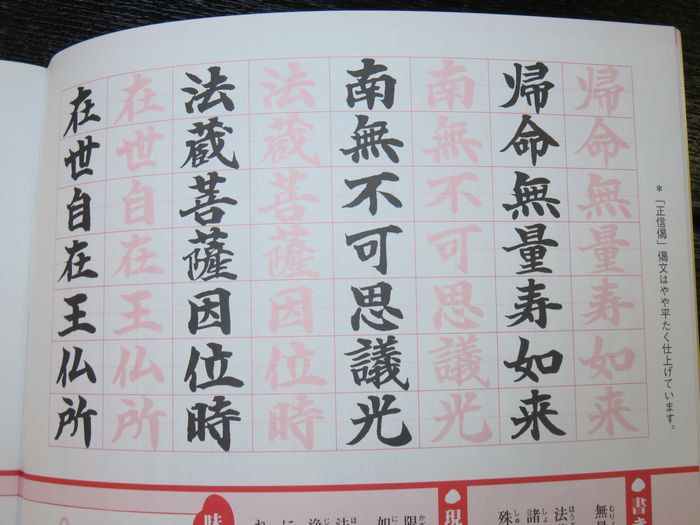 帰命無量寿如来
帰命無量寿如来
南無不可思議光
南無不可思議光
法蔵菩薩因位時
法蔵菩薩因位時
在世自在王仏所
在世自在王仏所
*「正信偈」偈文はやや平たく仕上げています。